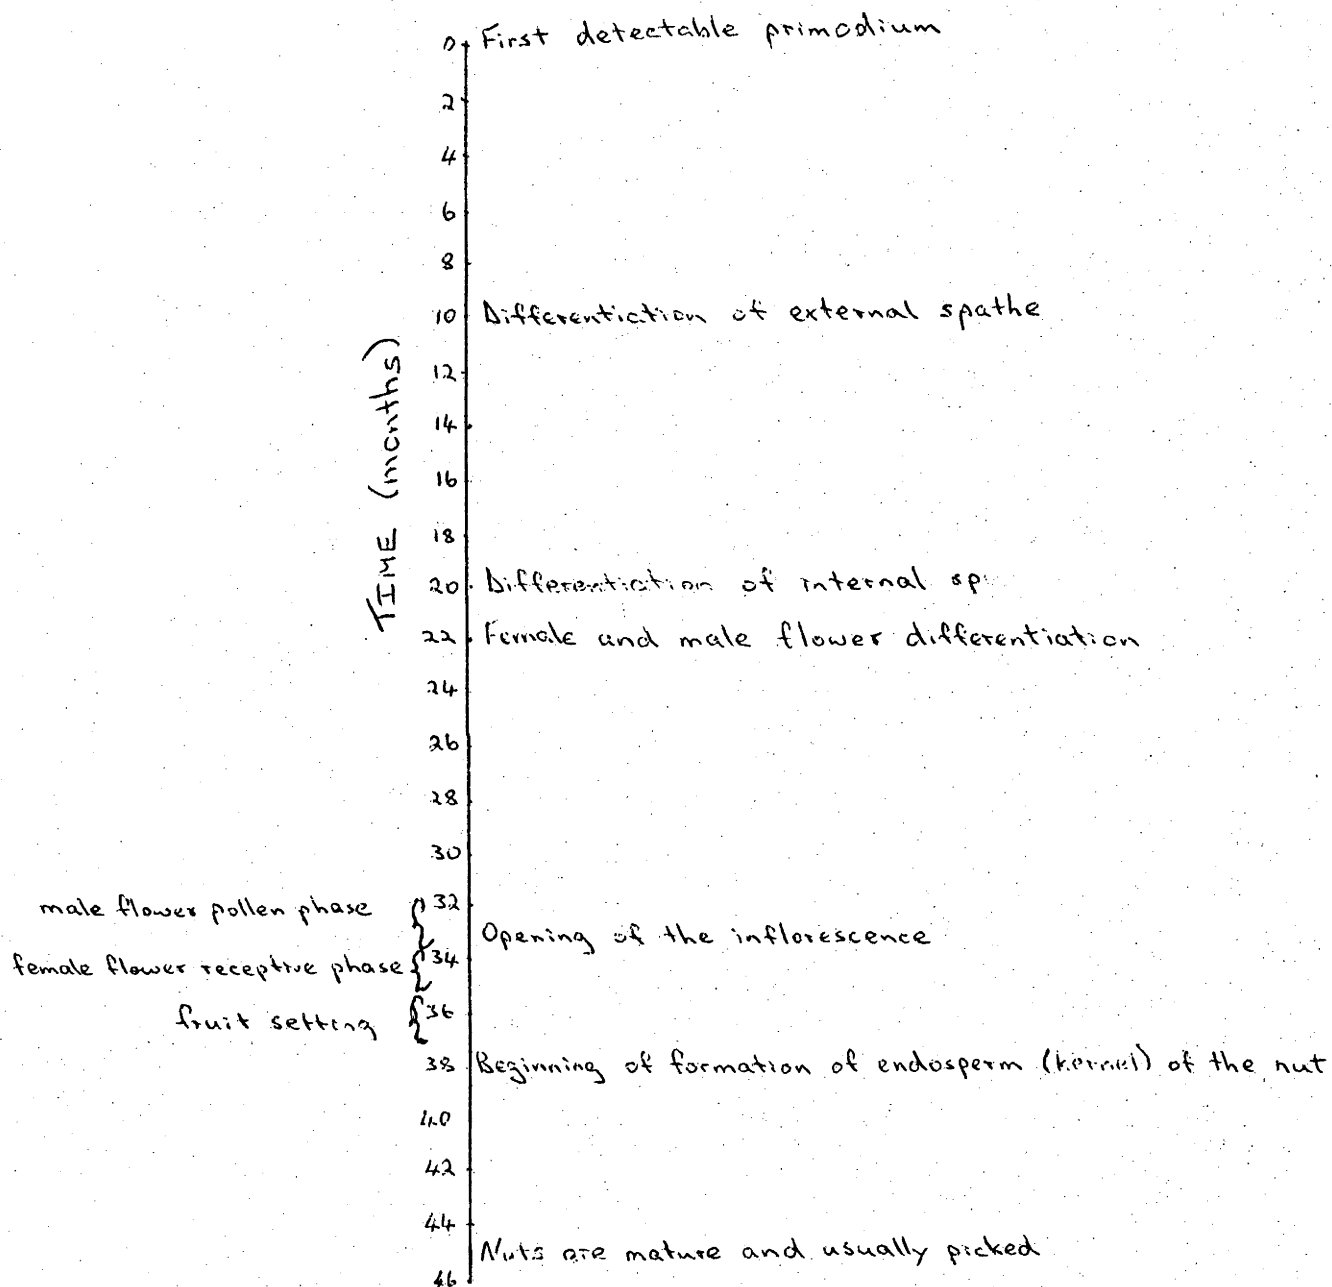 0 First detectable primodium
2
4
6
8
10 Differentiation of external spathe
12
14
16
18
20 Differentiation of internal sp
22 Female and male flower differentiation
24
26
28
30
male flower pollen phase 32
Opening of the inflorescence
female flower receptive phase 34
fruit setting 36
38 Beginning of formation of endosperm (kernel) of the nut
40
42
44
Nuts are mature and usually picked
46
TIME (months)